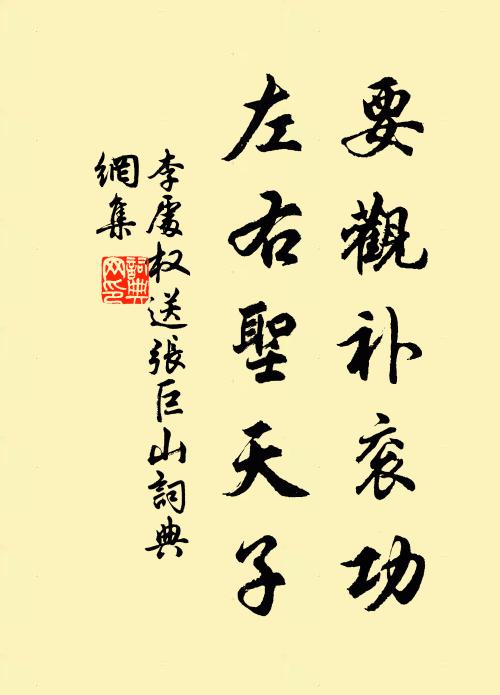 要觀补衮功
左右聖天子
李處权送張巨山詞典
網集
詞典網印